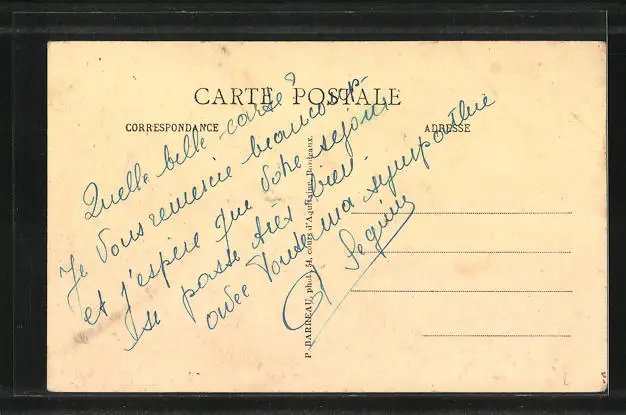 CARTE POSTALE
CORRESPONDANCE
ADRESSE
Quelle belle carte?
Je Vous remercie beaucoup
et j'espère que Votre sejour
se passe très bien.
avec toute ma sympathie
Seguin
P. BARREAU, phot., 54, cours d'Aquitaine, Bordeaux.